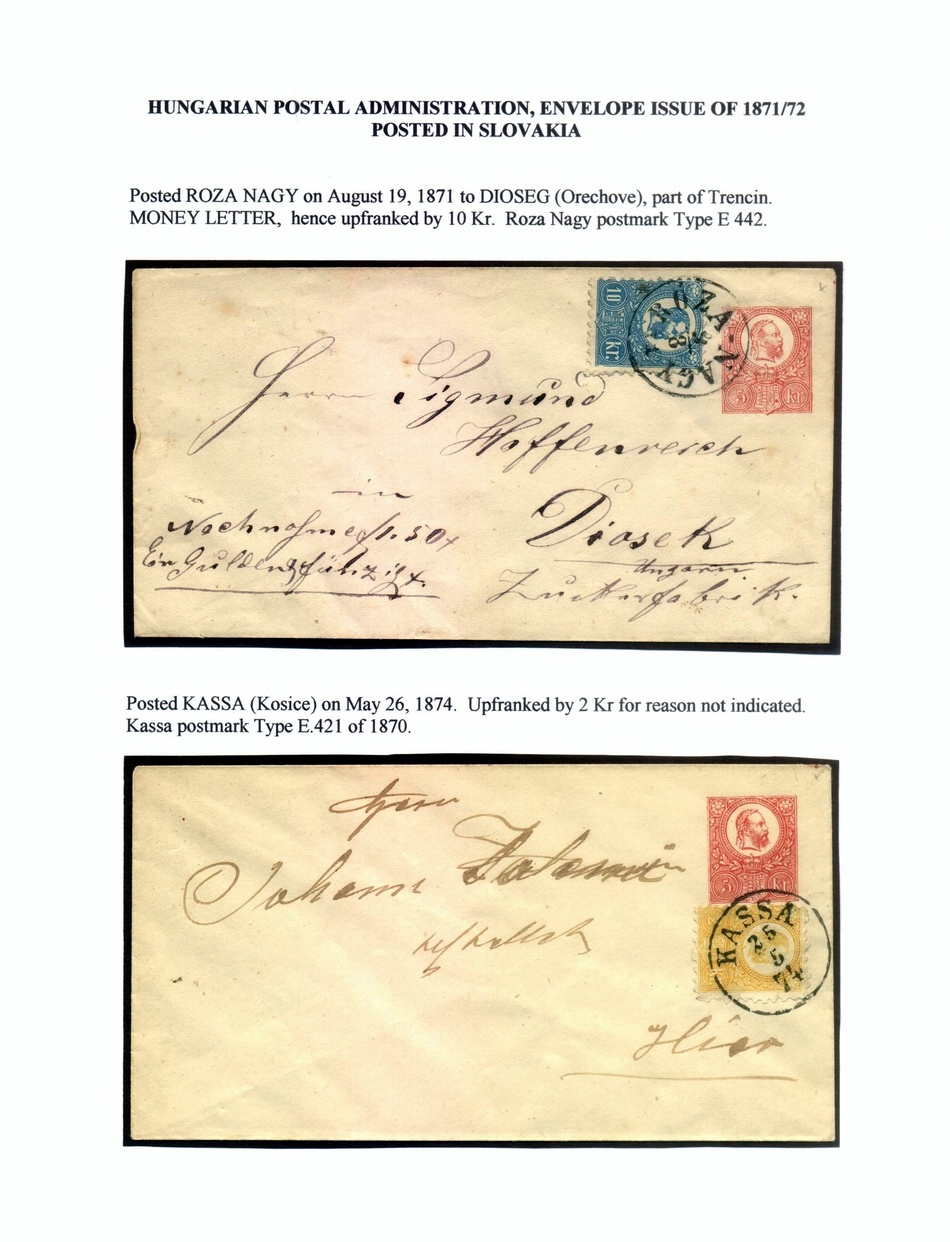 HUNGARIAN POSTAL ADMINISTRATION, ENVELOPE ISSUE OF 1871/72
POSTED IN SLOVAKIA
Posted ROZA NAGY on August 19, 1871 to DIOSEG (Orechove), part of Trencin.
MONEY LETTER, hence upfranked by 10 Kr. Roza Nagy postmark Type E 442.
10 KR.
ROZA-NAGY
5 Kr.
Herrn Sigmund
Hoffenreich
in
Diosek
Ungarn
Zuckerfabrik.
Nachnahme fl. 50 x
Ein Gulden
Posted KASSA (Kosice) on May 26, 1874. Upfranked by 2 Kr for reason not indicated.
Kassa postmark Type E.421 of 1870.
Herrn
Johann
Hier
KASSA
5
74